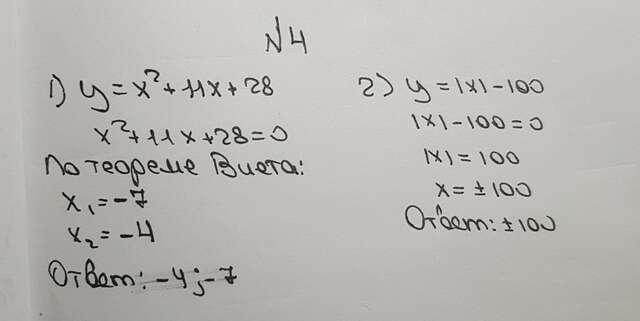 №4
1) y = x² + 11x + 28
x² + 11x + 28 = 0
По теореме Виета:
x₁ = -7
x₂ = -4
Ответ: -4; -7
2) y = |x| - 100
|x| - 100 = 0
|x| = 100
x = ±100
Ответ: ±100